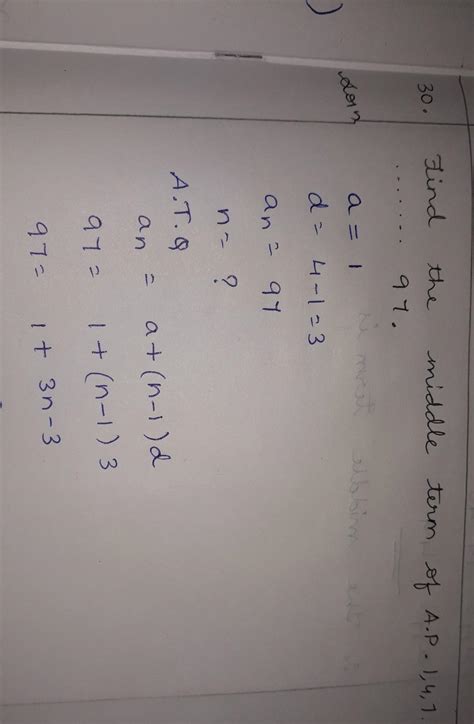 30. Find the middle term of A.P. 1, 4, 7
........ 97.
soln
a = 1
d = 4-1 = 3
an = 97
n = ?
A.T.Q
an = a + (n-1)d
97 = 1 + (n-1)3
97 = 1 + 3n-3